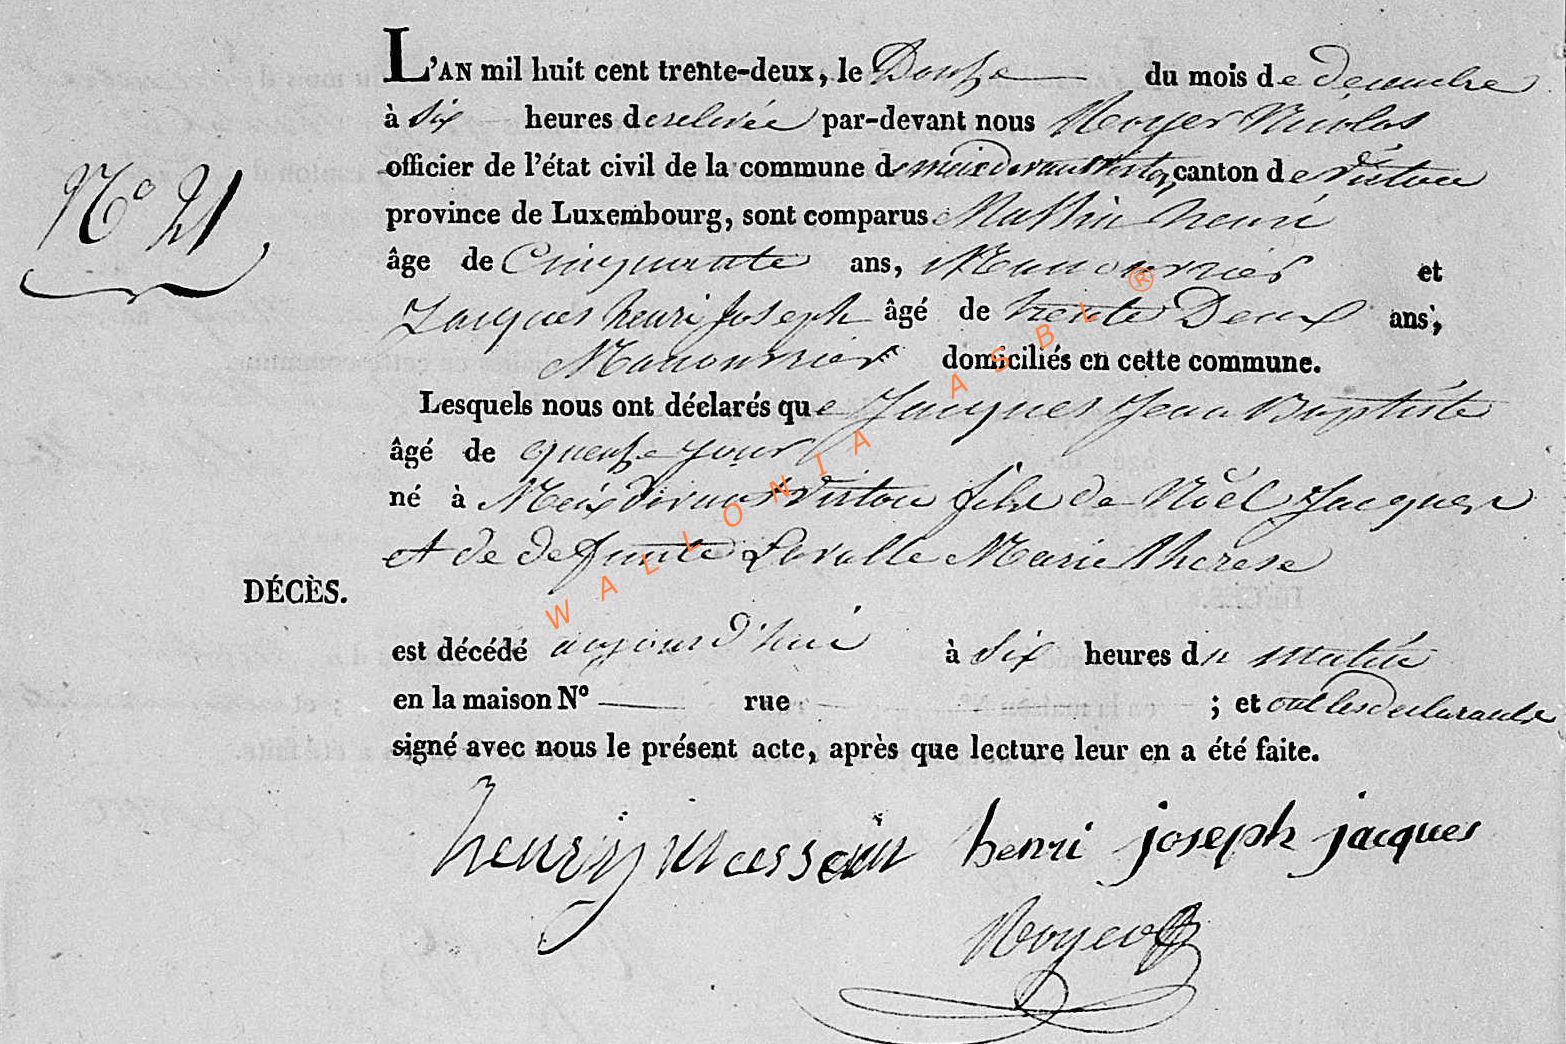 L'AN mil huit cent trente-deux, le Douze du mois de decembre
à Six heures de relevée par-devant nous Royer Nicolas
N° 21
officier de l'état civil de la commune de meix devant virton canton de virton
province de Luxembourg, sont comparus Massin henri
âge de Cinquante ans, Manouvrier et
Jacques henri Joseph âgé de trente Deux ans,
Manouvrier domiciliés en cette commune.
Lesquels nous ont déclarés que Jacques Jean Baptiste
âgé de quenze jour
né à Meix devant virton fils de Noël Jacques
et de defunte Lavalle Marie therese
DÉCÈS.
est décédé aujourd'hui à Six heures du matin
en la maison N° rue ; et ont les declarants
signé avec nous le présent acte, après que lecture leur en a été faite.
henry henri joseph jacques
Royer
WALLONIA ASBL ®